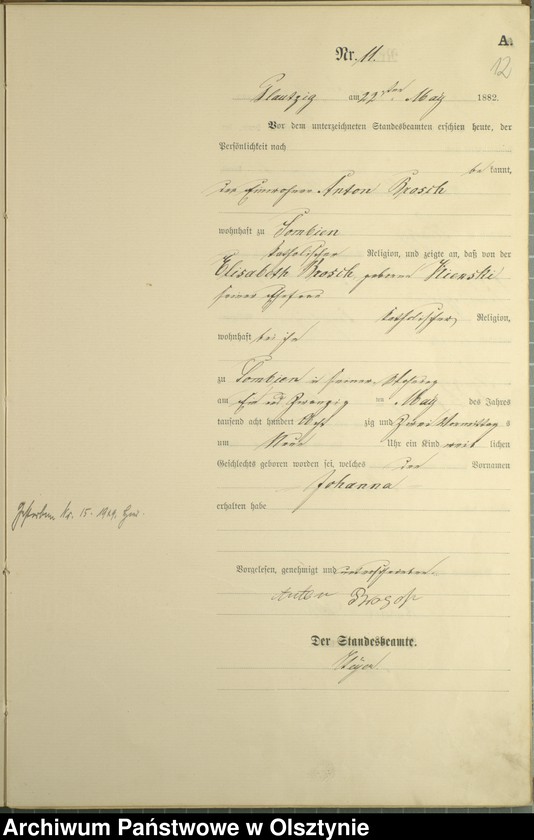 A.
12
Nr. 11.
Plautzig am 22ten May 1882.
Vor dem unterzeichneten Standesbeamten erschien heute, der
Persönlichkeit nach
be kannt,
der Einwohner Anton Brosch
wohnhaft zu Dembien
katholischer Religion, und zeigte an, daß von der
Elisabeth Brosch geborene
seiner Ehefrau
katholischer Religion,
wohnhaft bei ihm
zu in seiner Wohnung
am Ein und Zwanzig ten May des Jahres
tausend acht hundert Acht zig und Zwei Vormittag s
um Neun Uhr ein Kind weib lichen
Geschlechts geboren worden sei, welches den Vornamen
Johanna
erhalten habe
Gestorben Nr. 15. 1929.
Vorgelesen, genehmigt und unterschrieben
Anton
Der Standesbeamte.
Archiwum Państwowe w Olsztynie